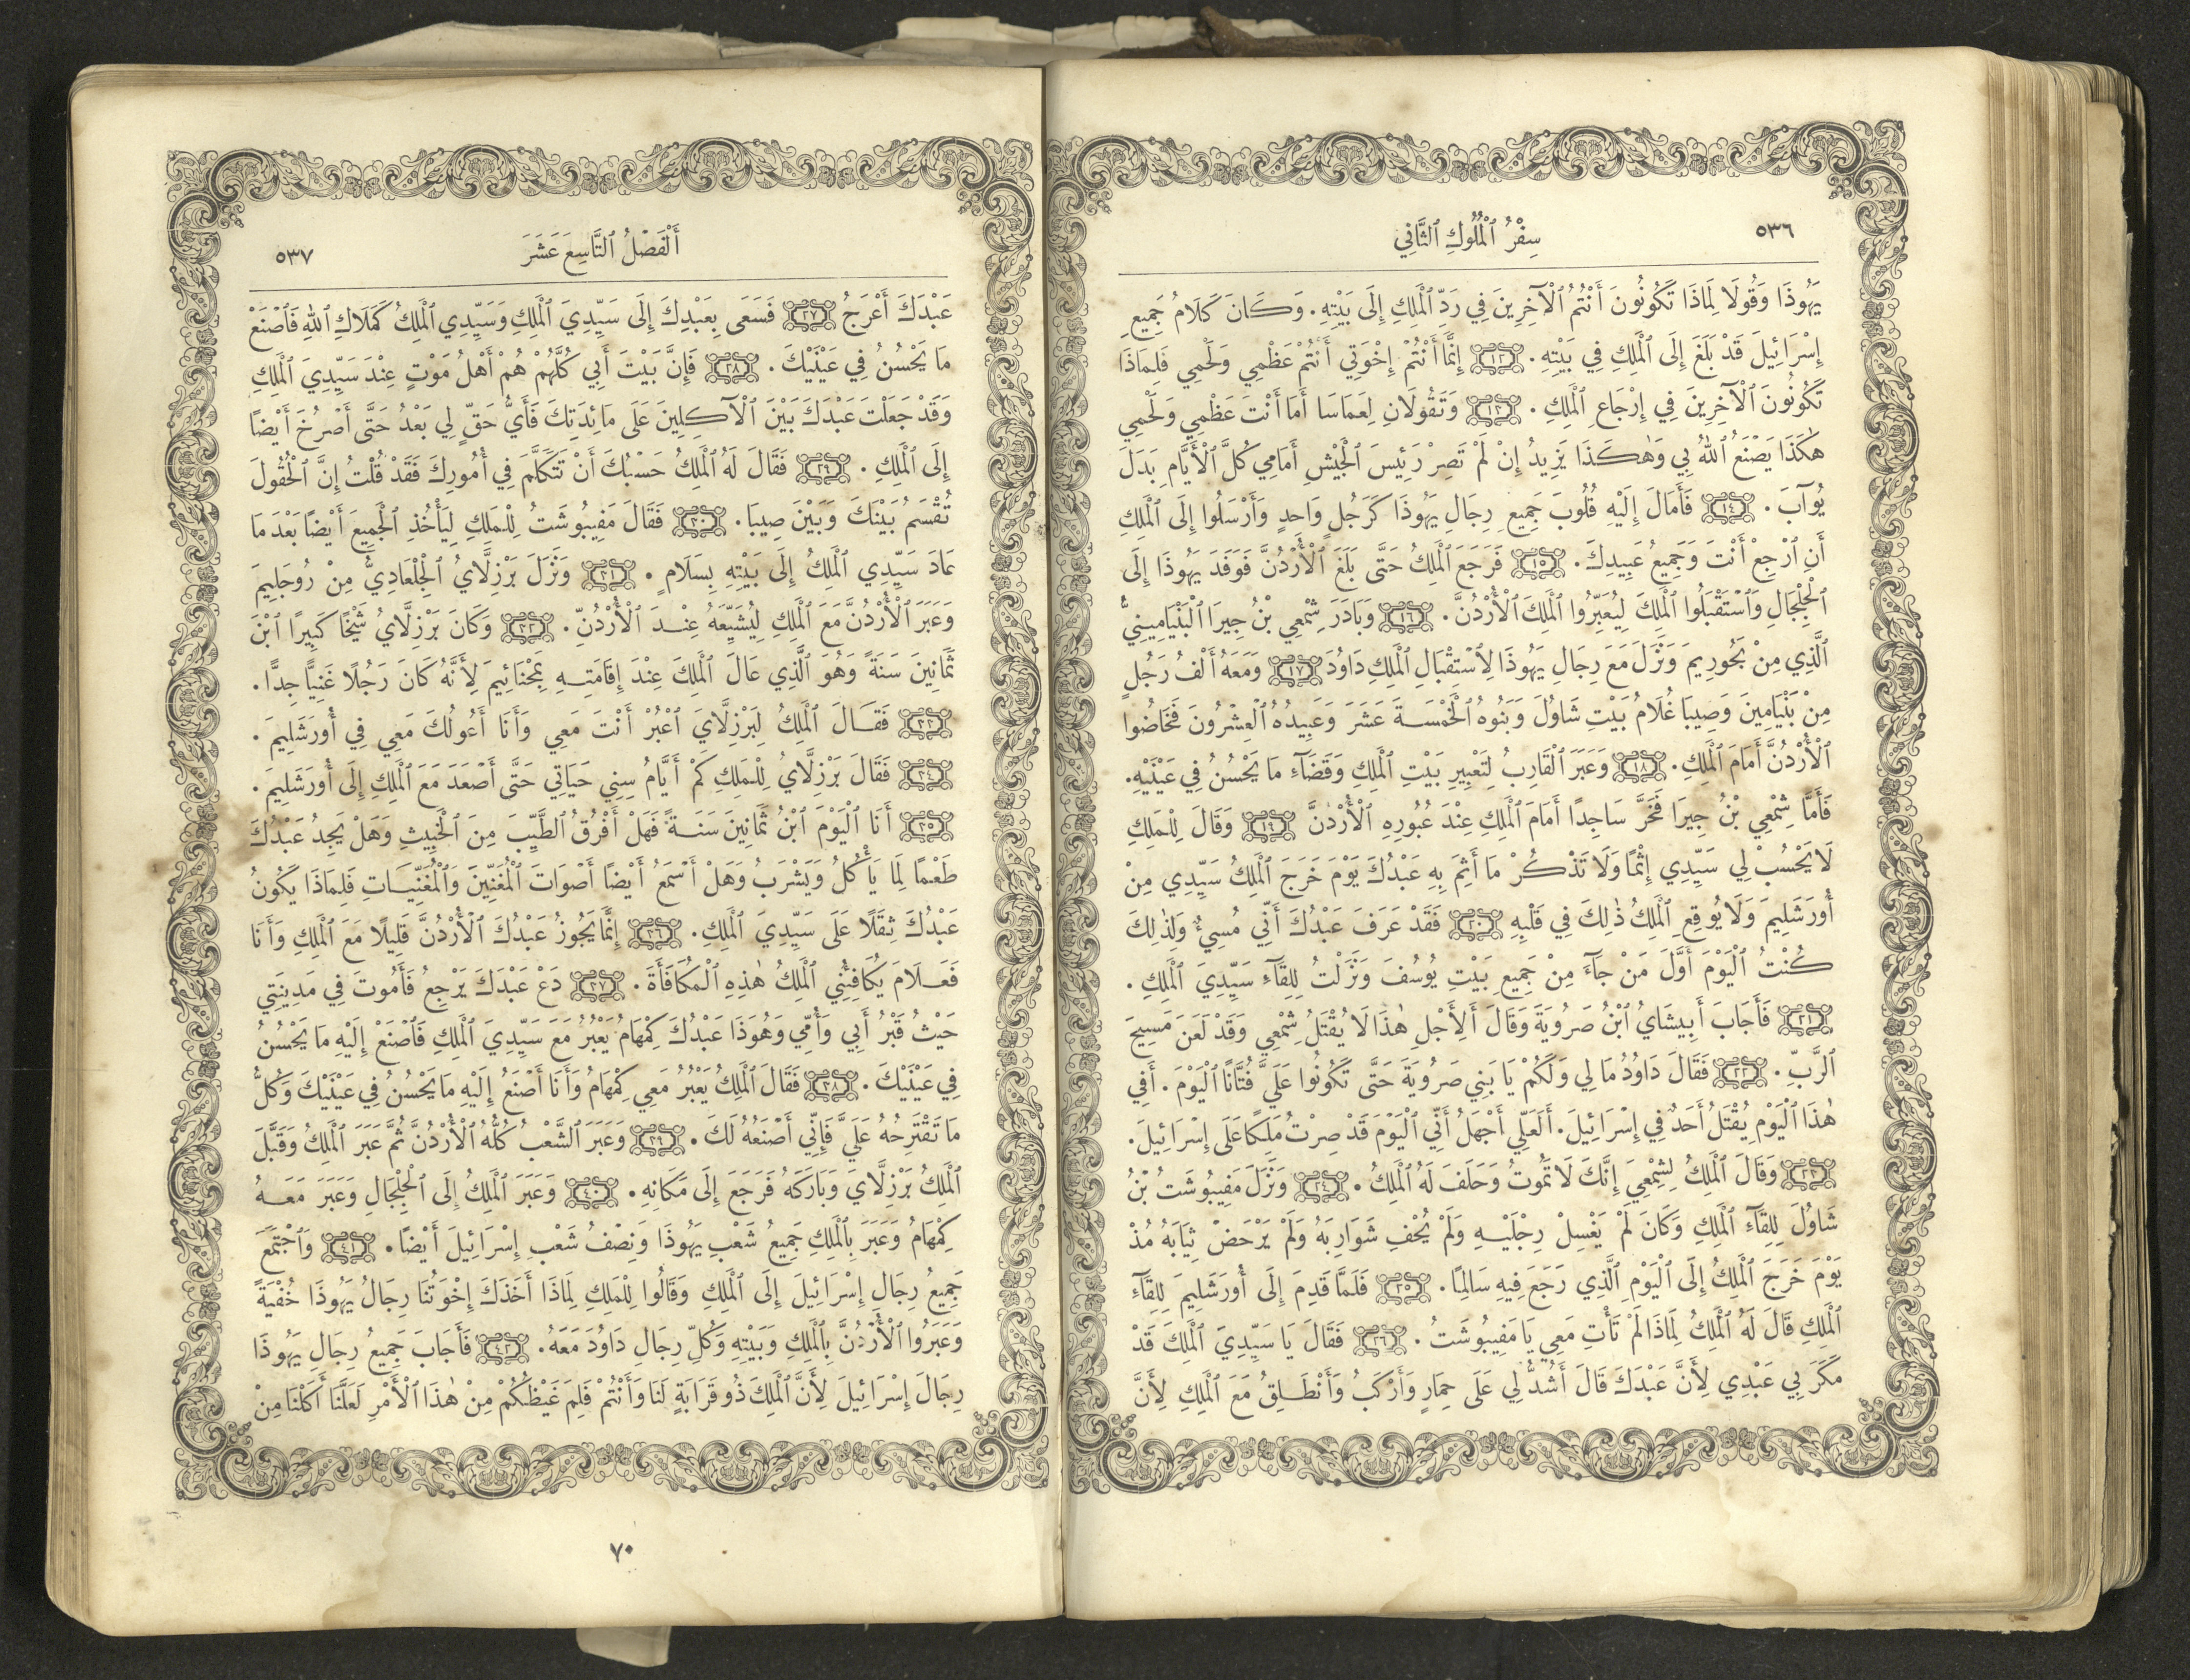 ٥٣٦
سِفْرُ ٱلْمُلُوكِ ٱلثَّانِي
يَهُوذَا وَقُولَا لِمَاذَا تَكُونُونَ أَنْتُمُ ٱلْآخِرِينَ فِي رَدِّ ٱلْمَلِكِ إِلَى بَيْتِهِ. وَكَانَ كَلَامُ جَمِيعِ
إِسْرَائِيلَ قَدْ بَلَغَ إِلَى ٱلْمَلِكِ فِي بَيْتِهِ. ١٢ إِنَّمَا أَنْتُمْ إِخْوَتِي أَنْتُمْ عَظْمِي وَلَحْمِي فَلِمَاذَا
تَكُونُونَ ٱلْآخِرِينَ فِي إِرْجَاعِ ٱلْمَلِكِ. ١٣ وَتَقُولَانِ لِعَمَاسَا أَمَا أَنْتَ عَظْمِي وَلَحْمِي
هٰكَذَا يَصْنَعُ ٱللهُ بِي وَهٰكَذَا يَزِيدُ إِنْ لَمْ تَصِرْ رَئِيسَ ٱلْجَيْشِ أَمَامِي كُلَّ ٱلْأَيَّامِ بَدَلَ
يُوآبَ. ١٤ فَأَمَالَ إِلَيْهِ قُلُوبَ جَمِيعِ رِجَالِ يَهُوذَا كَرَجُلٍ وَاحِدٍ وَأَرْسَلُوا إِلَى ٱلْمَلِكِ
أَنِ ٱرْجِعْ أَنْتَ وَجَمِيعُ عَبِيدِكَ. ١٥ فَرَجَعَ ٱلْمَلِكُ حَتَّى بَلَغَ ٱلْأُرْدُنَّ فَوَفَدَ يَهُوذَا إِلَى
ٱلْجِلْجَالِ وَٱسْتَقْبَلُوا ٱلْمَلِكَ لِيُعَبِّرُوا ٱلْمَلِكَ ٱلْأُرْدُنَّ. ١٦ وَبَادَرَ شِمْعِي بْنُ جِيرَا ٱلْبَنْيَامِينِيُّ
ٱلَّذِي مِنْ بَحُورِيمَ وَنَزَلَ مَعَ رِجَالِ يَهُوذَا لِٱسْتِقْبَالِ ٱلْمَلِكِ دَاوُدَ ١٧ وَمَعَهُ أَلْفُ رَجُلٍ
مِنْ بَنْيَامِينَ وَصِيبَا غُلَامُ بَيْتِ شَاوُلَ وَبَنُوهُ ٱلْخَمْسَةَ عَشَرَ وَعَبِيدُهُ ٱلْعِشْرُونَ فَخَاضُوا
ٱلْأُرْدُنَّ أَمَامَ ٱلْمَلِكِ. ١٨ وَعَبَرَ ٱلْقَارِبُ لِتَعْبِيرِ بَيْتِ ٱلْمَلِكِ وَقَضَآءِ مَا يَحْسُنُ فِي عَيْنَيْهِ.
فَأَمَّا شِمْعِي بْنُ جِيرَا فَخَرَّ سَاجِدًا أَمَامَ ٱلْمَلِكِ عِنْدَ عُبُورِهِ ٱلْأُرْدُنَّ ١٩ وَقَالَ لِلْمَلِكِ
لَا يَحْسُبْ لِي سَيِّدِي إِثْمًا وَلَا تَذْكُرْ مَا أَثِمَ بِهِ عَبْدُكَ يَوْمَ خَرَجَ ٱلْمَلِكُ سَيِّدِي مِنْ
أُورَشَلِيمَ وَلَا يُوقِعِ ٱلْمَلِكُ ذٰلِكَ فِي قَلْبِهِ ٢٠ فَقَدْ عَرَفَ عَبْدُكَ أَنِّي مُسِيءٌ وَلِذٰلِكَ
كُنْتُ ٱلْيَوْمَ أَوَّلَ مَنْ جَآءَ مِنْ جَمِيعِ بَيْتِ يُوسُفَ وَنَزَلْتُ لِلِقَآءِ سَيِّدِيَ ٱلْمَلِكِ.
٢١ فَأَجَابَ أَبِيشَايُ ٱبْنُ صَرُويَةَ وَقَالَ أَلِأَجْلِ هٰذَا لَا يُقْتَلُ شِمْعِي وَقَدْ لَعَنَ مَسِيحَ
ٱلرَّبِّ. ٢٢ فَقَالَ دَاوُدُ مَا لِي وَلَكُمْ يَا بَنِي صَرُويَةَ حَتَّى تَكُونُوا عَلَيَّ فُتَّانًا ٱلْيَوْمَ. أَفِي
هٰذَا ٱلْيَوْمِ يُقْتَلُ أَحَدٌ فِي إِسْرَائِيلَ. أَلَعَلِّي أَجْهَلُ أَنِّي ٱلْيَوْمَ قَدْ صِرْتُ مَلِكًا عَلَى إِسْرَائِيلَ.
٢٣ وَقَالَ ٱلْمَلِكُ لِشِمْعِيَ إِنَّكَ لَا تَمُوتُ وَحَلَفَ لَهُ ٱلْمَلِكُ. ٢٤ وَنَزَلَ مَفِيبُوشَتُ بْنُ
شَاوُلَ لِلِقَآءِ ٱلْمَلِكِ وَكَانَ لَمْ يَغْسِلْ رِجْلَيْهِ وَلَمْ يُحْفِ شَوَارِبَهُ وَلَمْ يَرْحَضْ ثِيَابَهُ مُذْ
يَوْمَ خَرَجَ ٱلْمَلِكُ إِلَى ٱلْيَوْمِ ٱلَّذِي رَجَعَ فِيهِ سَالِمًا. ٢٥ فَلَمَّا قَدِمَ إِلَى أُورَشَلِيمَ لِلِقَآءِ
ٱلْمَلِكِ قَالَ لَهُ ٱلْمَلِكُ لِمَاذَا لَمْ تَأْتِ مَعِي يَا مَفِيبُوشَتُ. ٢٦ فَقَالَ يَا سَيِّدِيَ ٱلْمَلِكَ قَدْ
مَكَرَ بِي عَبْدِي لِأَنَّ عَبْدَكَ قَالَ أَشُدُّ لِي عَلَى حِمَارٍ وَأَرْكَبُ وَأَنْطَلِقُ مَعَ ٱلْمَلِكِ لِأَنَّ
أَلْفَصْلُ ٱلتَّاسِعَ عَشَرَ
٥٣٧
عَبْدَكَ أَعْرَجُ ٢٧ فَسَعَى بِعَبْدِكَ إِلَى سَيِّدِيَ ٱلْمَلِكِ وَسَيِّدِي ٱلْمَلِكُ كَمَلَاكِ ٱللهِ فَٱصْنَعْ
مَا يَحْسُنُ فِي عَيْنَيْكَ. ٢٨ فَإِنَّ بَيْتَ أَبِي كُلَّهُمْ هُمْ أَهْلُ مَوْتٍ عِنْدَ سَيِّدِيَ ٱلْمَلِكِ
وَقَدْ جَعَلْتَ عَبْدَكَ بَيْنَ ٱلْآكِلِينَ عَلَى مَائِدَتِكَ فَأَيُّ حَقٍّ لِي بَعْدُ حَتَّى أَصْرُخَ أَيْضًا
إِلَى ٱلْمَلِكِ. ٢٩ فَقَالَ لَهُ ٱلْمَلِكُ حَسْبُكَ أَنْ تَتَكَلَّمَ فِي أُمُورِكَ فَقَدْ قُلْتُ إِنَّ ٱلْحُقُولَ
تُقْسَمُ بَيْنَكَ وَبَيْنَ صِيبَا. ٣٠ فَقَالَ مَفِيبُوشَتُ لِلْمَلِكِ لِيَأْخُذِ ٱلْجَمِيعَ أَيْضًا بَعْدَ مَا
عَادَ سَيِّدِي ٱلْمَلِكُ إِلَى بَيْتِهِ بِسَلَامٍ. ٣١ وَنَزَلَ بَرْزِلَّايُ ٱلْجِلْعَادِيُّ مِنْ رُوجَلِيمَ
وَعَبَرَ ٱلْأُرْدُنَّ مَعَ ٱلْمَلِكِ لِيُشَيِّعَهُ عِنْدَ ٱلْأُرْدُنِّ. ٣٢ وَكَانَ بَرْزِلَّايُ شَيْخًا كَبِيرًا ٱبْنَ
ثَمَانِينَ سَنَةً وَهُوَ ٱلَّذِي عَالَ ٱلْمَلِكَ عِنْدَ إِقَامَتِهِ بِمَحْنَائِيمَ لِأَنَّهُ كَانَ رَجُلًا غَنِيًّا جِدًّا.
٣٣ فَقَالَ ٱلْمَلِكُ لِبَرْزِلَّايَ ٱعْبُرْ أَنْتَ مَعِي وَأَنَا أَعُولُكَ مَعِي فِي أُورَشَلِيمَ.
٣٤ فَقَالَ بَرْزِلَّايُ لِلْمَلِكِ كَمْ أَيَّامُ سِنِي حَيَاتِي حَتَّى أَصْعَدَ مَعَ ٱلْمَلِكِ إِلَى أُورَشَلِيمَ.
٣٥ أَنَا ٱلْيَوْمَ ٱبْنُ ثَمَانِينَ سَنَةً فَهَلْ أَفْرُقُ ٱلطَّيِّبَ مِنَ ٱلْخَبِيثِ وَهَلْ يَجِدُ عَبْدُكَ
طَعْمًا لِمَا يَأْكُلُ وَيَشْرَبُ وَهَلْ أَسْمَعُ أَيْضًا أَصْوَاتَ ٱلْمُغَنِّينَ وَٱلْمُغَنِّيَاتِ فَلِمَاذَا يَكُونُ
عَبْدُكَ ثِقَلًا عَلَى سَيِّدِيَ ٱلْمَلِكِ. ٣٦ إِنَّمَا يَجُوزُ عَبْدُكَ ٱلْأُرْدُنَّ قَلِيلًا مَعَ ٱلْمَلِكِ وَأَنَا
فَعَلَامَ يُكَافِئُنِي ٱلْمَلِكُ هٰذِهِ ٱلْمُكَافَأَةَ. ٣٧ دَعْ عَبْدَكَ يَرْجِعُ فَأَمُوتَ فِي مَدِينَتِي
حَيْثُ قَبْرُ أَبِي وَأُمِّي وَهُوَذَا عَبْدُكَ كِمْهَامُ يَعْبُرُ مَعَ سَيِّدِيَ ٱلْمَلِكِ فَٱصْنَعْ إِلَيْهِ مَا يَحْسُنُ
فِي عَيْنَيْكَ. ٣٨ فَقَالَ ٱلْمَلِكُ يَعْبُرُ مَعِي كِمْهَامُ وَأَنَا أَصْنَعُ إِلَيْهِ مَا يَحْسُنُ فِي عَيْنَيْكَ وَكُلُّ
مَا تَقْتَرِحُهُ عَلَيَّ فَإِنِّي أَصْنَعُهُ لَكَ. ٣٩ وَعَبَرَ ٱلشَّعْبُ كُلُّهُ ٱلْأُرْدُنَّ ثُمَّ عَبَرَ ٱلْمَلِكُ وَقَبَّلَ
ٱلْمَلِكُ بَرْزِلَّايَ وَبَارَكَهُ فَرَجَعَ إِلَى مَكَانِهِ. ٤٠ وَعَبَرَ ٱلْمَلِكُ إِلَى ٱلْجِلْجَالِ وَعَبَرَ مَعَهُ
كِمْهَامُ وَعَبَرَ بِٱلْمَلِكِ جَمِيعُ شَعْبِ يَهُوذَا وَنِصْفُ شَعْبِ إِسْرَائِيلَ أَيْضًا. ٤١ وَٱجْتَمَعَ
جَمِيعُ رِجَالِ إِسْرَائِيلَ إِلَى ٱلْمَلِكِ وَقَالُوا لِلْمَلِكِ لِمَاذَا أَخَذَكَ إِخْوَتُنَا رِجَالُ يَهُوذَا خُفْيَةً
وَعَبَرُوا ٱلْأُرْدُنَّ بِٱلْمَلِكِ وَبَيْتِهِ وَكُلِّ رِجَالِ دَاوُدَ مَعَهُ. ٤٢ فَأَجَابَ جَمِيعُ رِجَالِ يَهُوذَا
رِجَالَ إِسْرَائِيلَ لِأَنَّ ٱلْمَلِكَ ذُو قَرَابَةٍ لَنَا وَأَنْتُمْ فَلِمَ غَيْظُكُمْ مِنْ هٰذَا ٱلْأَمْرِ لَعَلَّنَا أَكَلْنَا مِنْ
٧٠